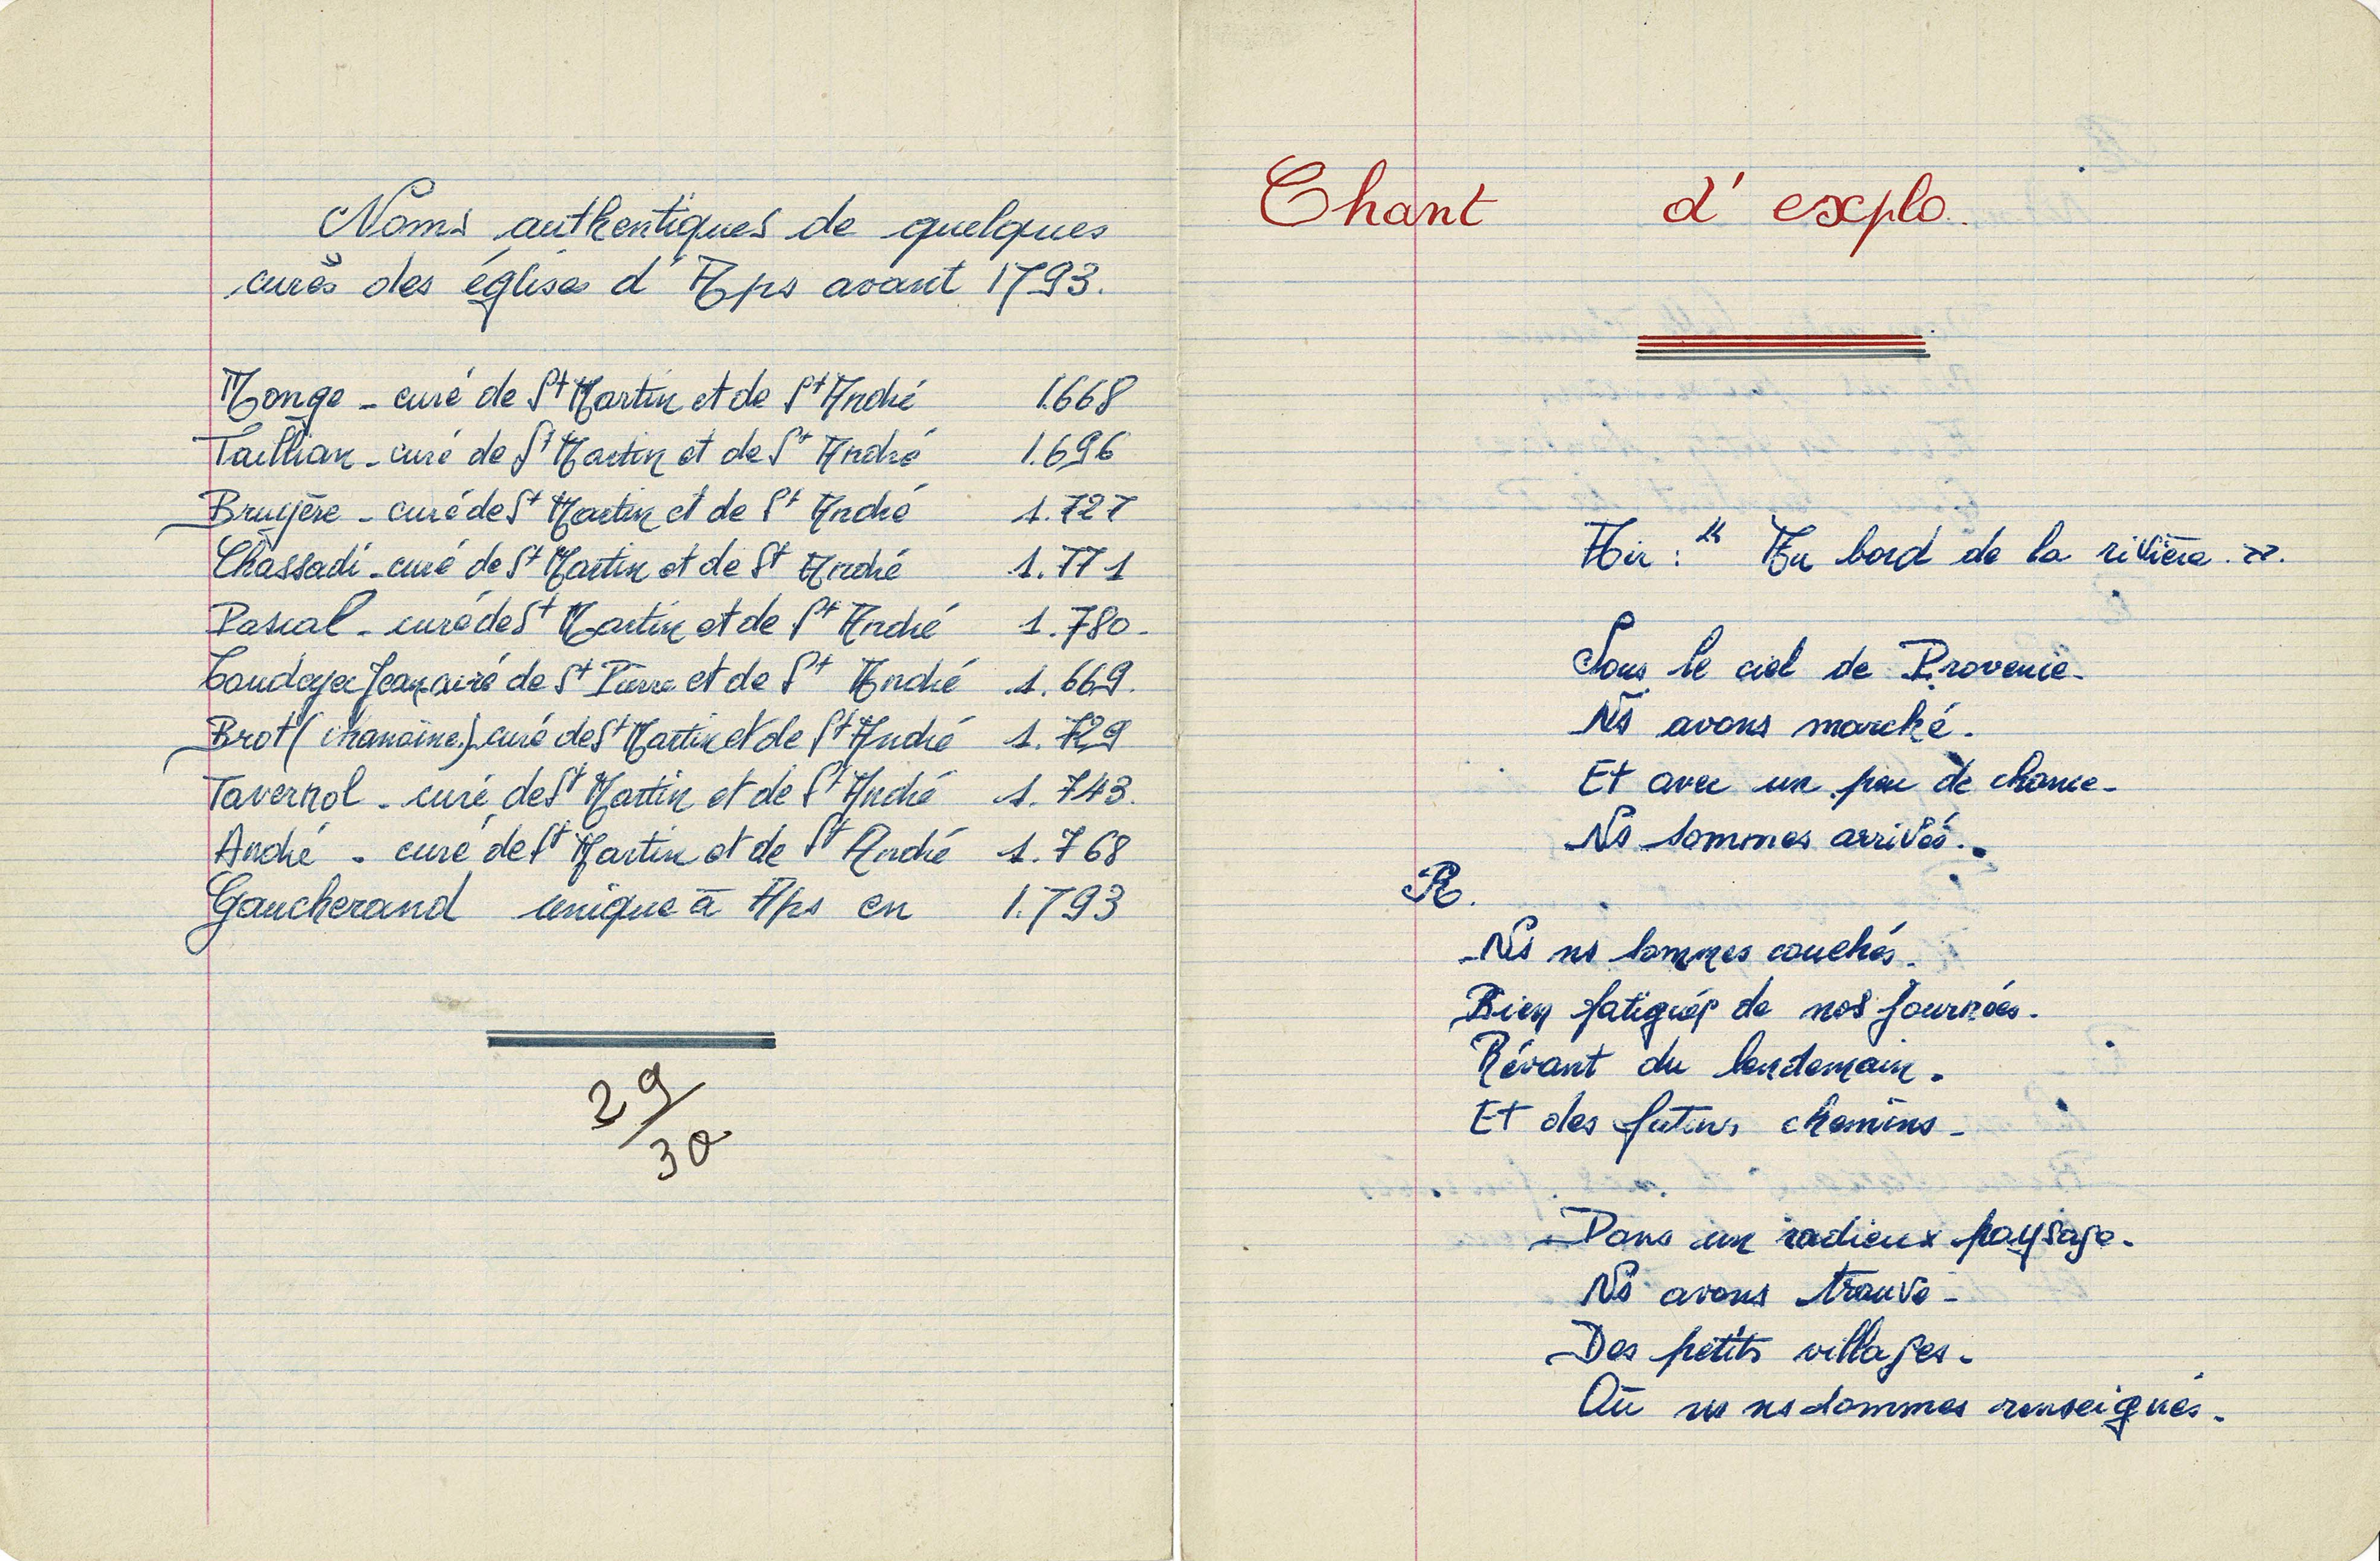 Noms authentiques de quelques
curés des églises d'Aps avant 1793.
Monge - curé de St Martin et de St André 1.668
Taillian - curé de St Martin et de St André 1.696
Bruyère - curé de St Martin et de St André 1.727
Chassadi - curé de St Martin et de St André 1.771
Pascal - curé de St Martin et de St André 1.780.
Jean curé de St Pierre et de St André 1.669.
Brot (chanoine) curé de St Martin et de St André 1.729
Tavernol - curé de St Martin et de St André 1.743.
André - curé de St Martin et de St André 1.768
Gaucherand unique à Aps en 1.793
29/30
Chant d'explo.
Air : "Au bord de la rivière."
Sous le ciel de Provence.
Ns avons marché.
Et avec un peu de chance.
Ns sommes arrivés.
R.
Ns ns sommes couchés.
Bien fatigués de nos journées.
Rêvant du lendemain.
Et des futurs chemins.
Dans un radieux paysage.
Ns avons trouvé
Des petits villages.
Où ns ns sommes renseignés.